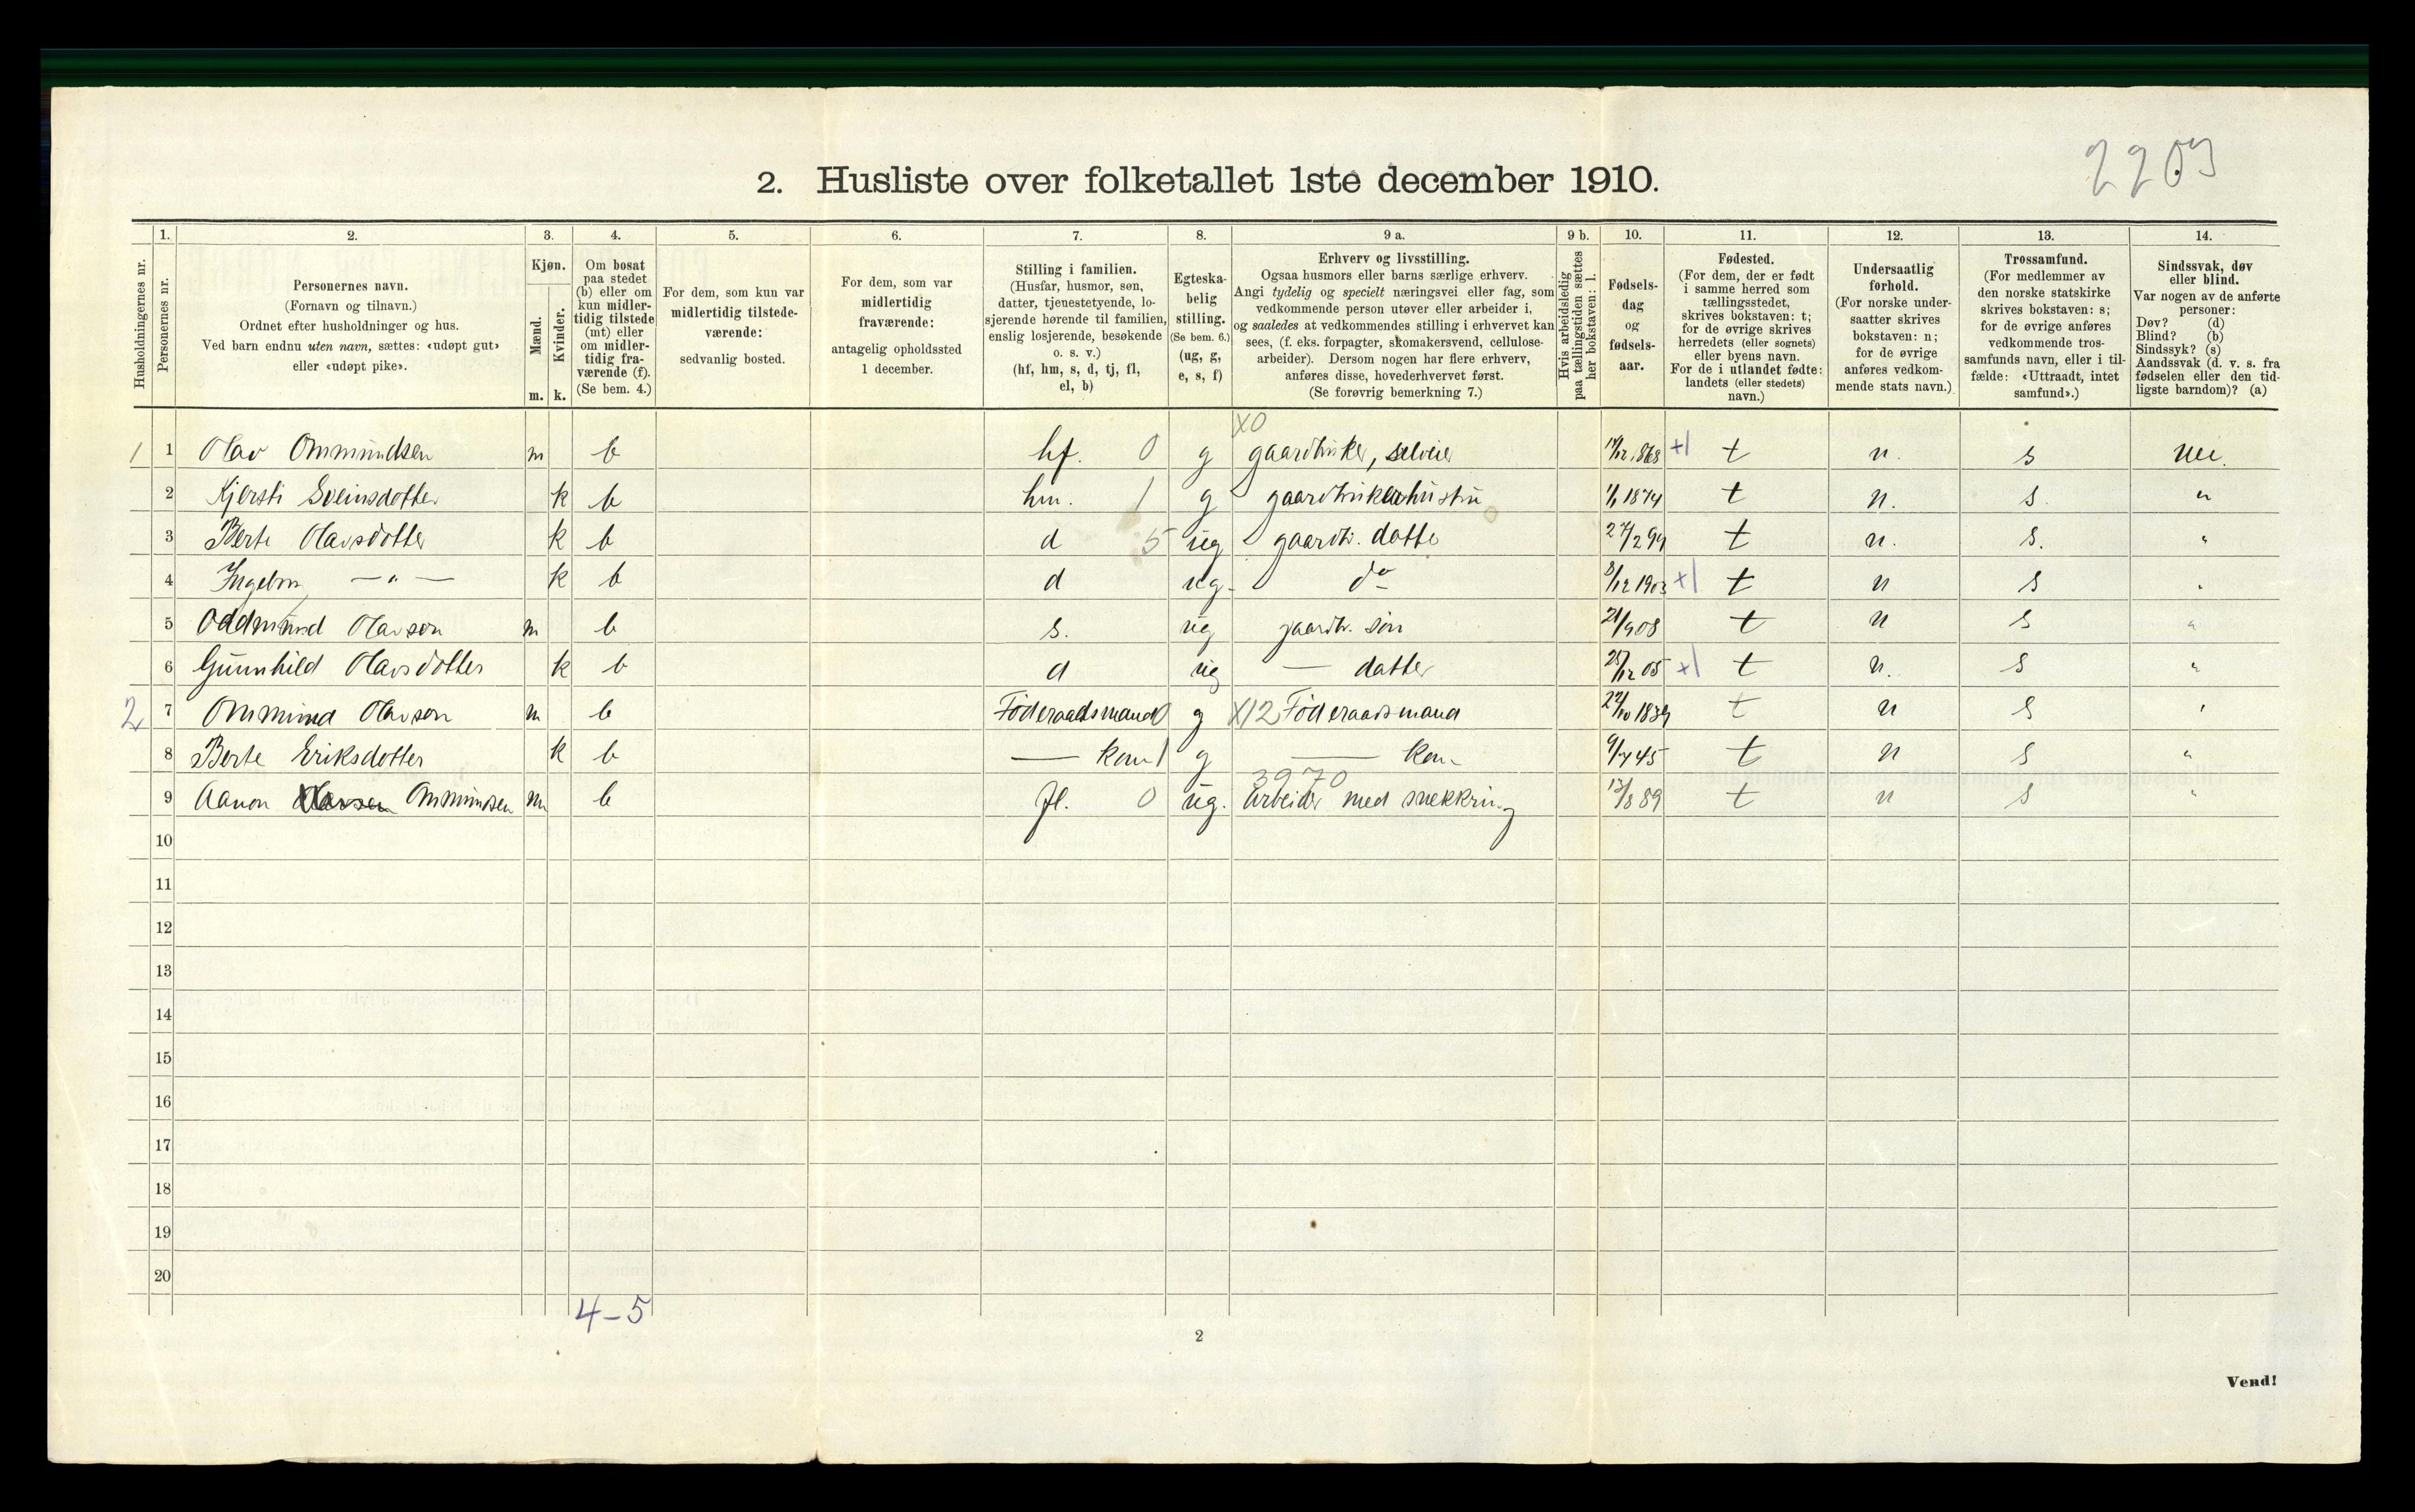 2209
2. Husliste over folketallet 1ste december 1910.
Husholdningernes nr.
1.
Personernes nr.
2.
Personernes navn.
(Fornavn og tilnavn.)
Ordnet efter husholdninger og hus.
Ved barn endnu uten navn, sættes: «udøpt gut»
eller «udøpt pike».
3.
Kjøn.
Mænd.
Kvinder.
m. k.
4.
Om bosat
paa stedet
(b) eller om
kun midler-
tidig tilstede
(mt) eller
om midler-
tidig fra-
værende (f).
(Se bem. 4.)
5.
For dem, som kun var
midlertidig tilstede-
værende:
sedvanlig bosted.
6.
For dem, som var
midlertidig
fraværende:
antagelig opholdssted
1 december.
7.
Stilling i familien.
(Husfar, husmor, søn,
datter, tjenestetyende, lo-
sjerende hørende til familien,
enslig losjerende, besøkende
o. s. v.)
(hf, hm, s, d, tj, fl,
el, b)
8.
Egteska-
belig
stilling.
(Se bem. 6.)
(ug, g,
e, s, f)
9 a.
Erhverv og livsstilling.
Ogsaa husmors eller barns særlige erhverv.
Angi tydelig og specielt næringsvei eller fag, som
vedkommende person utøver eller arbeider i,
og saaledes at vedkommendes stilling i erhvervet kan
sees, (f. eks. forpagter, skomakersvend, cellulose-
arbeider). Dersom nogen har flere erhverv,
anføres disse, hovederhvervet først.
(Se forøvrig bemerkning 7.)
9 b.
Hvis arbeidsledig
paa tællingstiden sættes
her bokstaven: l.
10.
Fødsels-
dag
og
fødsels-
aar.
11.
Fødested.
(For dem, der er født
i samme herred som
tællingsstedet,
skrives bokstaven: t;
for de øvrige skrives
herredets (eller sognets)
eller byens navn.
For de i utlandet fødte:
landets (eller stedets)
navn.)
12.
Undersaatlig
forhold.
(For norske under-
saatter skrives
bokstaven: n;
for de øvrige
anføres vedkom-
mende stats navn.)
13.
Trossamfund.
(For medlemmer av
den norske statskirke
skrives bokstaven: s;
for de øvrige anføres
vedkommende tros-
samfunds navn, eller i til-
fælde: «Uttraadt, intet
samfund».)
14.
Sindssvak, døv
eller blind.
Var nogen av de anførte
personer:
Døv? (d)
Blind? (b)
Sindssyk? (s)
Aandssvak (d. v. s. fra
fødselen eller den tid-
ligste barndom)? (a)
X0
1 1 Olav Ommundsen m b hf. 0 g gaardbruker, selveier 14/12 1868 +1 t n. s nei.
2 Kjersti Sveinsdotter k b hm. 1 g gaardbrukerhustru 1/1 1874 t n. s. "
3 Berte Olavsdotter k b d 5 ug gaardbr. datte 27/2 99 t n. s. "
4 Ingebor — " — k b d ug. do 8/12 1903 +1 t n s "
5 Oddmund Olavson m b s. ug gaardbr. søn 21/9 08 t n s "
6 Gunnhild Olavsdotter k b d ug — datter 25/12 05 +1 t n. s "
2 7 Ommund Olavson m b Føderaadsmand 0 g X12 Føderaadsmand 22/10 1839 t n s "
8 Berte Eriksdotter k b — kone 1 g — kone 9/7 45 t n s "
3970
9 Aanon Olavsen Ommundsen m b fl. 0 ug. arbeider med snekkring 13/8 89 t n s "
10
11
12
13
14
15
16
17
18
19
20
4-5
2
Vend!